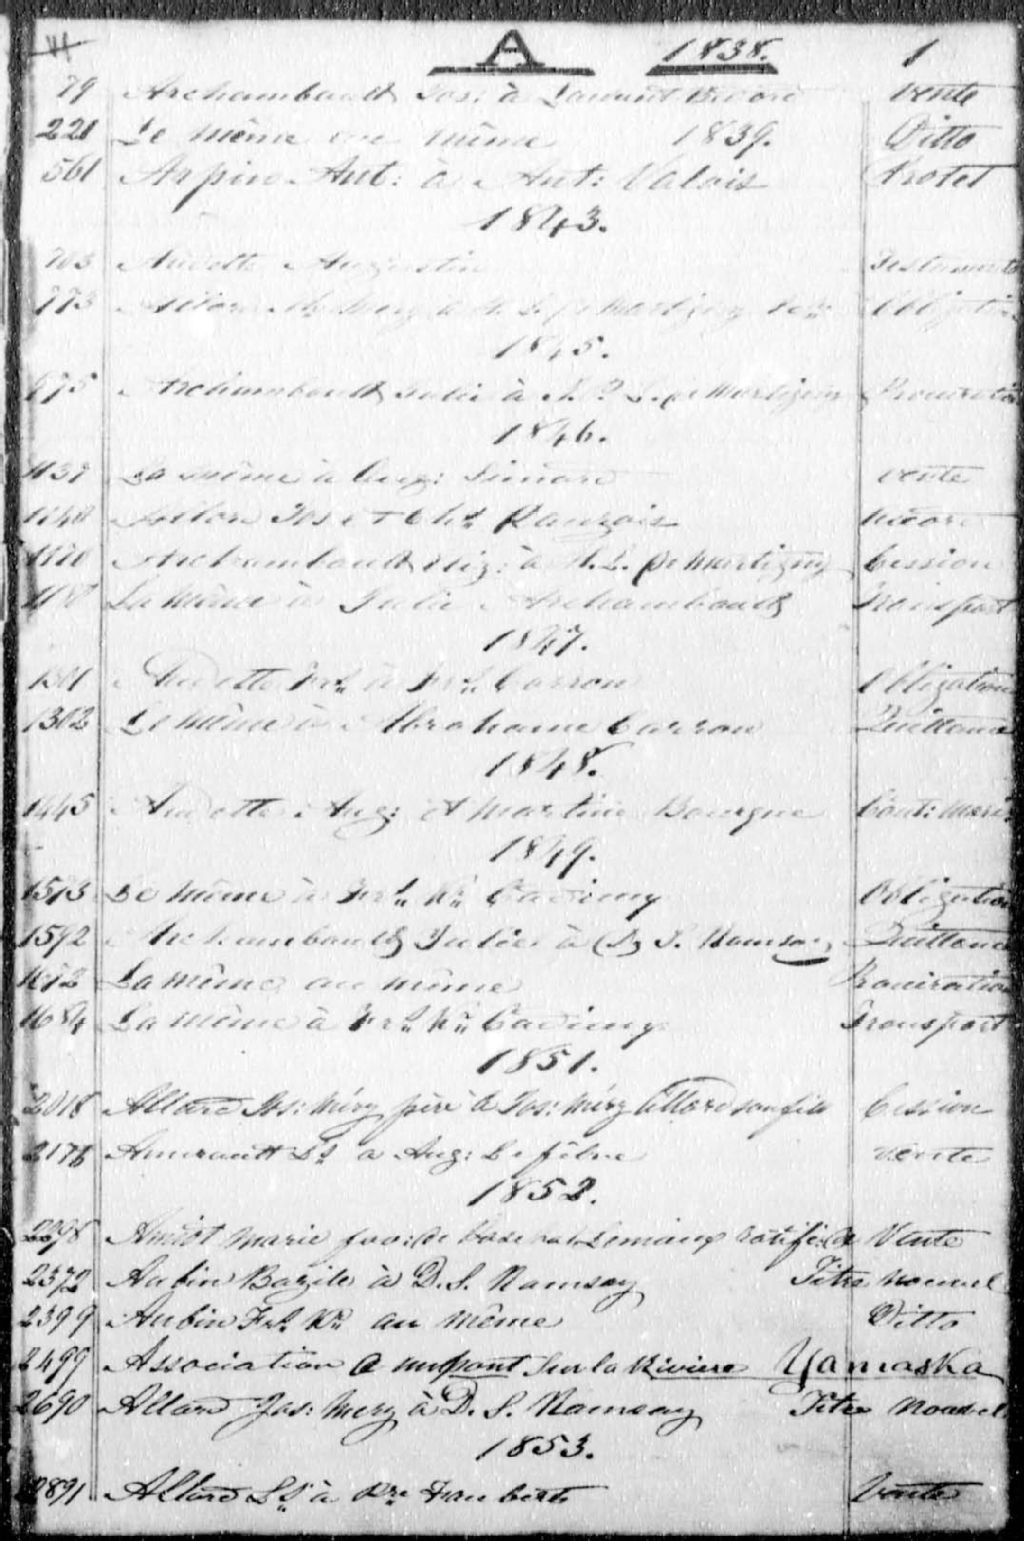 A 1838. 1
79 Archambault Jos: à Laurent Vente
221 Le même au même 1839. Ditto
561 Arpin Ant: à Ant: Valois Protet
1843.
703 Audette Augustin Testament
773 Obligation
1845.
975 Archambault Julie à De Martigny Procuration
1846.
1137 La même à Aug: Simard Vente
Jos et
1170 Archambault Eliz: à A. L. De Martigny Cession
1187 La Même à Julie Archambault Transport
1847.
1301 Audette Frs à Frs Carron Obligation
1302 Le Même à Abrahame Carron Quittance
1848.
1445 Audette Aug: & Martine Bourgue Cont: mari:
1849.
1573 Le même à Frs Xr Cadieux Obligation
1592 Archambault Julie à D. S. Ramsay Quittance
1672 La même au même Procuration
1684 La même à Frs Xr Cadieux Transport
1851.
2018 Allard Jos: Méry père à Jos: Méry Allard son fils Cession
2178 Amirault Ls à Aug: Lefebvre Vente
1852.
2298 Amiot Marie Vente
2372 Aubin Bazile à D. S. Ramsay Titre Nouvel
2399 Aubin Frs Xr au Même Ditto
2499 Association pont sur la Rivière Yamaska
2690 Allard Jos: Mery à D. S. Ramsay Titre Nouvel
1853.
2891 Allard Ls à Vente